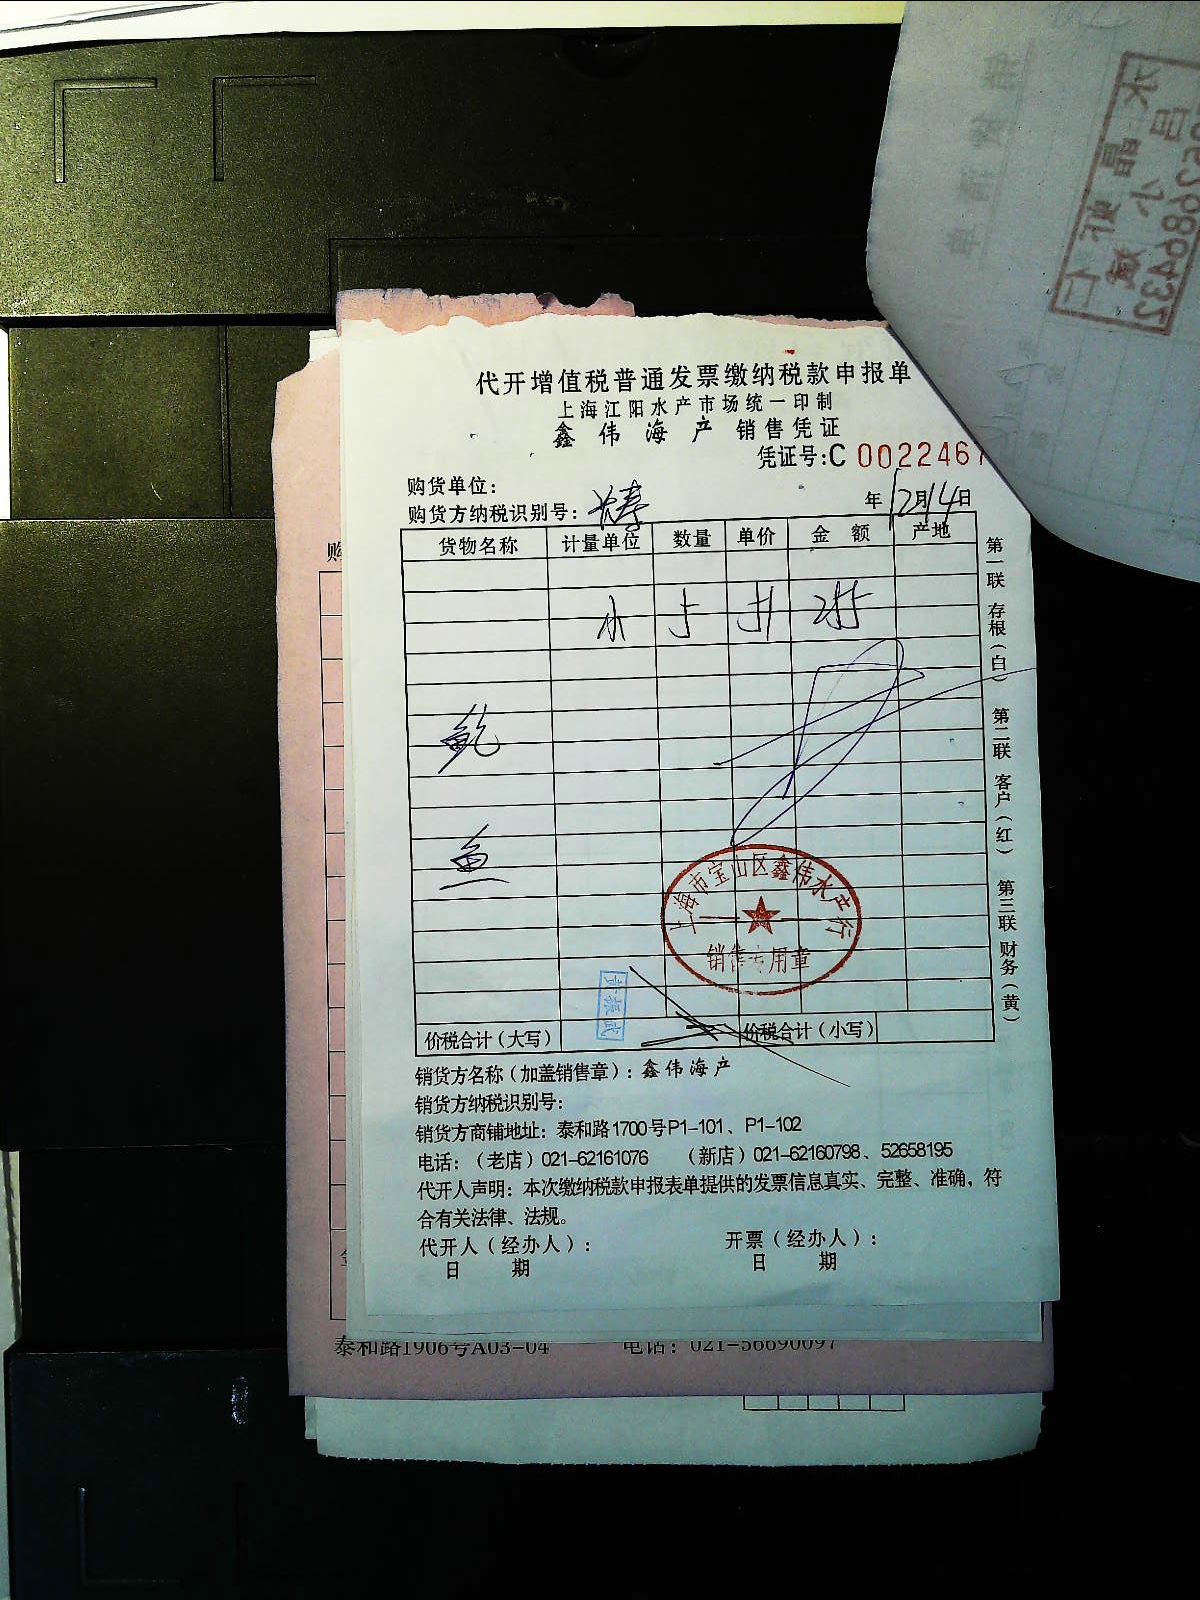 代开增值税普通发票缴纳税款申报单
上海江阳水产市场统一印制
鑫伟海产销售凭证
凭证号:C 0022467
购货单位:
购货方纳税识别号:
年12月14日
货物名称 计量单位 数量 单价 金额 产地
鲍
鱼
上海市宝山区鑫伟水产行
销售专用章
价税合计(大写) 价税合计(小写)
销货方名称(加盖销售章): 鑫伟海产
销货方纳税识别号:
销货方商铺地址: 泰和路1700号P1-101、P1-102
电话:(老店)021-62161076 (新店)021-62160798、52658195
代开人声明: 本次缴纳税款申报表单提供的发票信息真实、完整、准确, 符
合有关法律、法规。
代开人(经办人): 开票(经办人):
日 期 日 期
第一联 存根(白) 第二联 客户(红) 第三联 财务(黄)
购
泰和路1906号A03-04 电话: 021-56690097